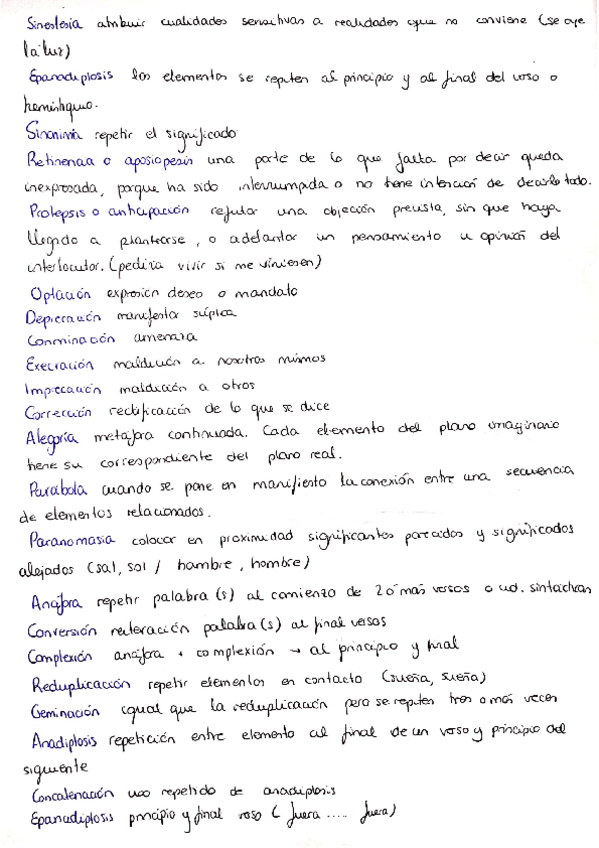 Sinestesia atribuir cualidades sensitivas a realidades que no conviene (se oye
la luz)
Epanadiplosis los elementos se repiten al principio y al final del verso o
hemistiquio.
Sinonimia repetir el significado
Reticencia o aposiopesis una parte de lo que falta por decir queda
inexpresada, porque ha sido interrumpida o no tiene intención de decirlo todo.
Prolepsis o anticipación refutar una objeción prevista, sin que haya
llegado a plantearse, o adelantar un pensamiento u opinión del
interlocutor. (pediría vivir si me viniesen)
Optación expresión deseo o mandato
Deprecación manifestar súplica
Conminación amenaza
Execración maldición a nosotros mismos
Imprecación maldición a otros
Corrección rectificación de lo que se dice
Alegoría metáfora continuada. Cada elemento del plano imaginario
tiene su correspondiente del plano real.
Parábola cuando se pone en manifiesto la conexión entre una secuencia
de elementos relacionados.
Paranomasia colocar en proximidad significantes parecidos y significados
alejados (sal, sol / hambre, hombre)
Anáfora repetir palabra(s) al comienzo de 2 ó más versos o ud. sintácticas
Conversión reiteración palabra(s) al final versos
Complexión anáfora + complexión → al principio y final
Reduplicación repetir elementos en contacto (sueña, sueña)
Geminación igual que la reduplicación pero se repiten tres o más veces
Anadiplosis repetición entre elemento al final de un verso y principio del
siguiente
Concatenación uso repetido de anadiplosis
Epanadiplosis principio y final verso ( fuera .... fuera)